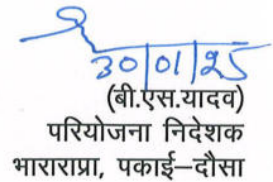 30/01/25
(बी.एस.यादव)
परियोजना निदेशक
भाराराप्रा, पकाई–दौसा